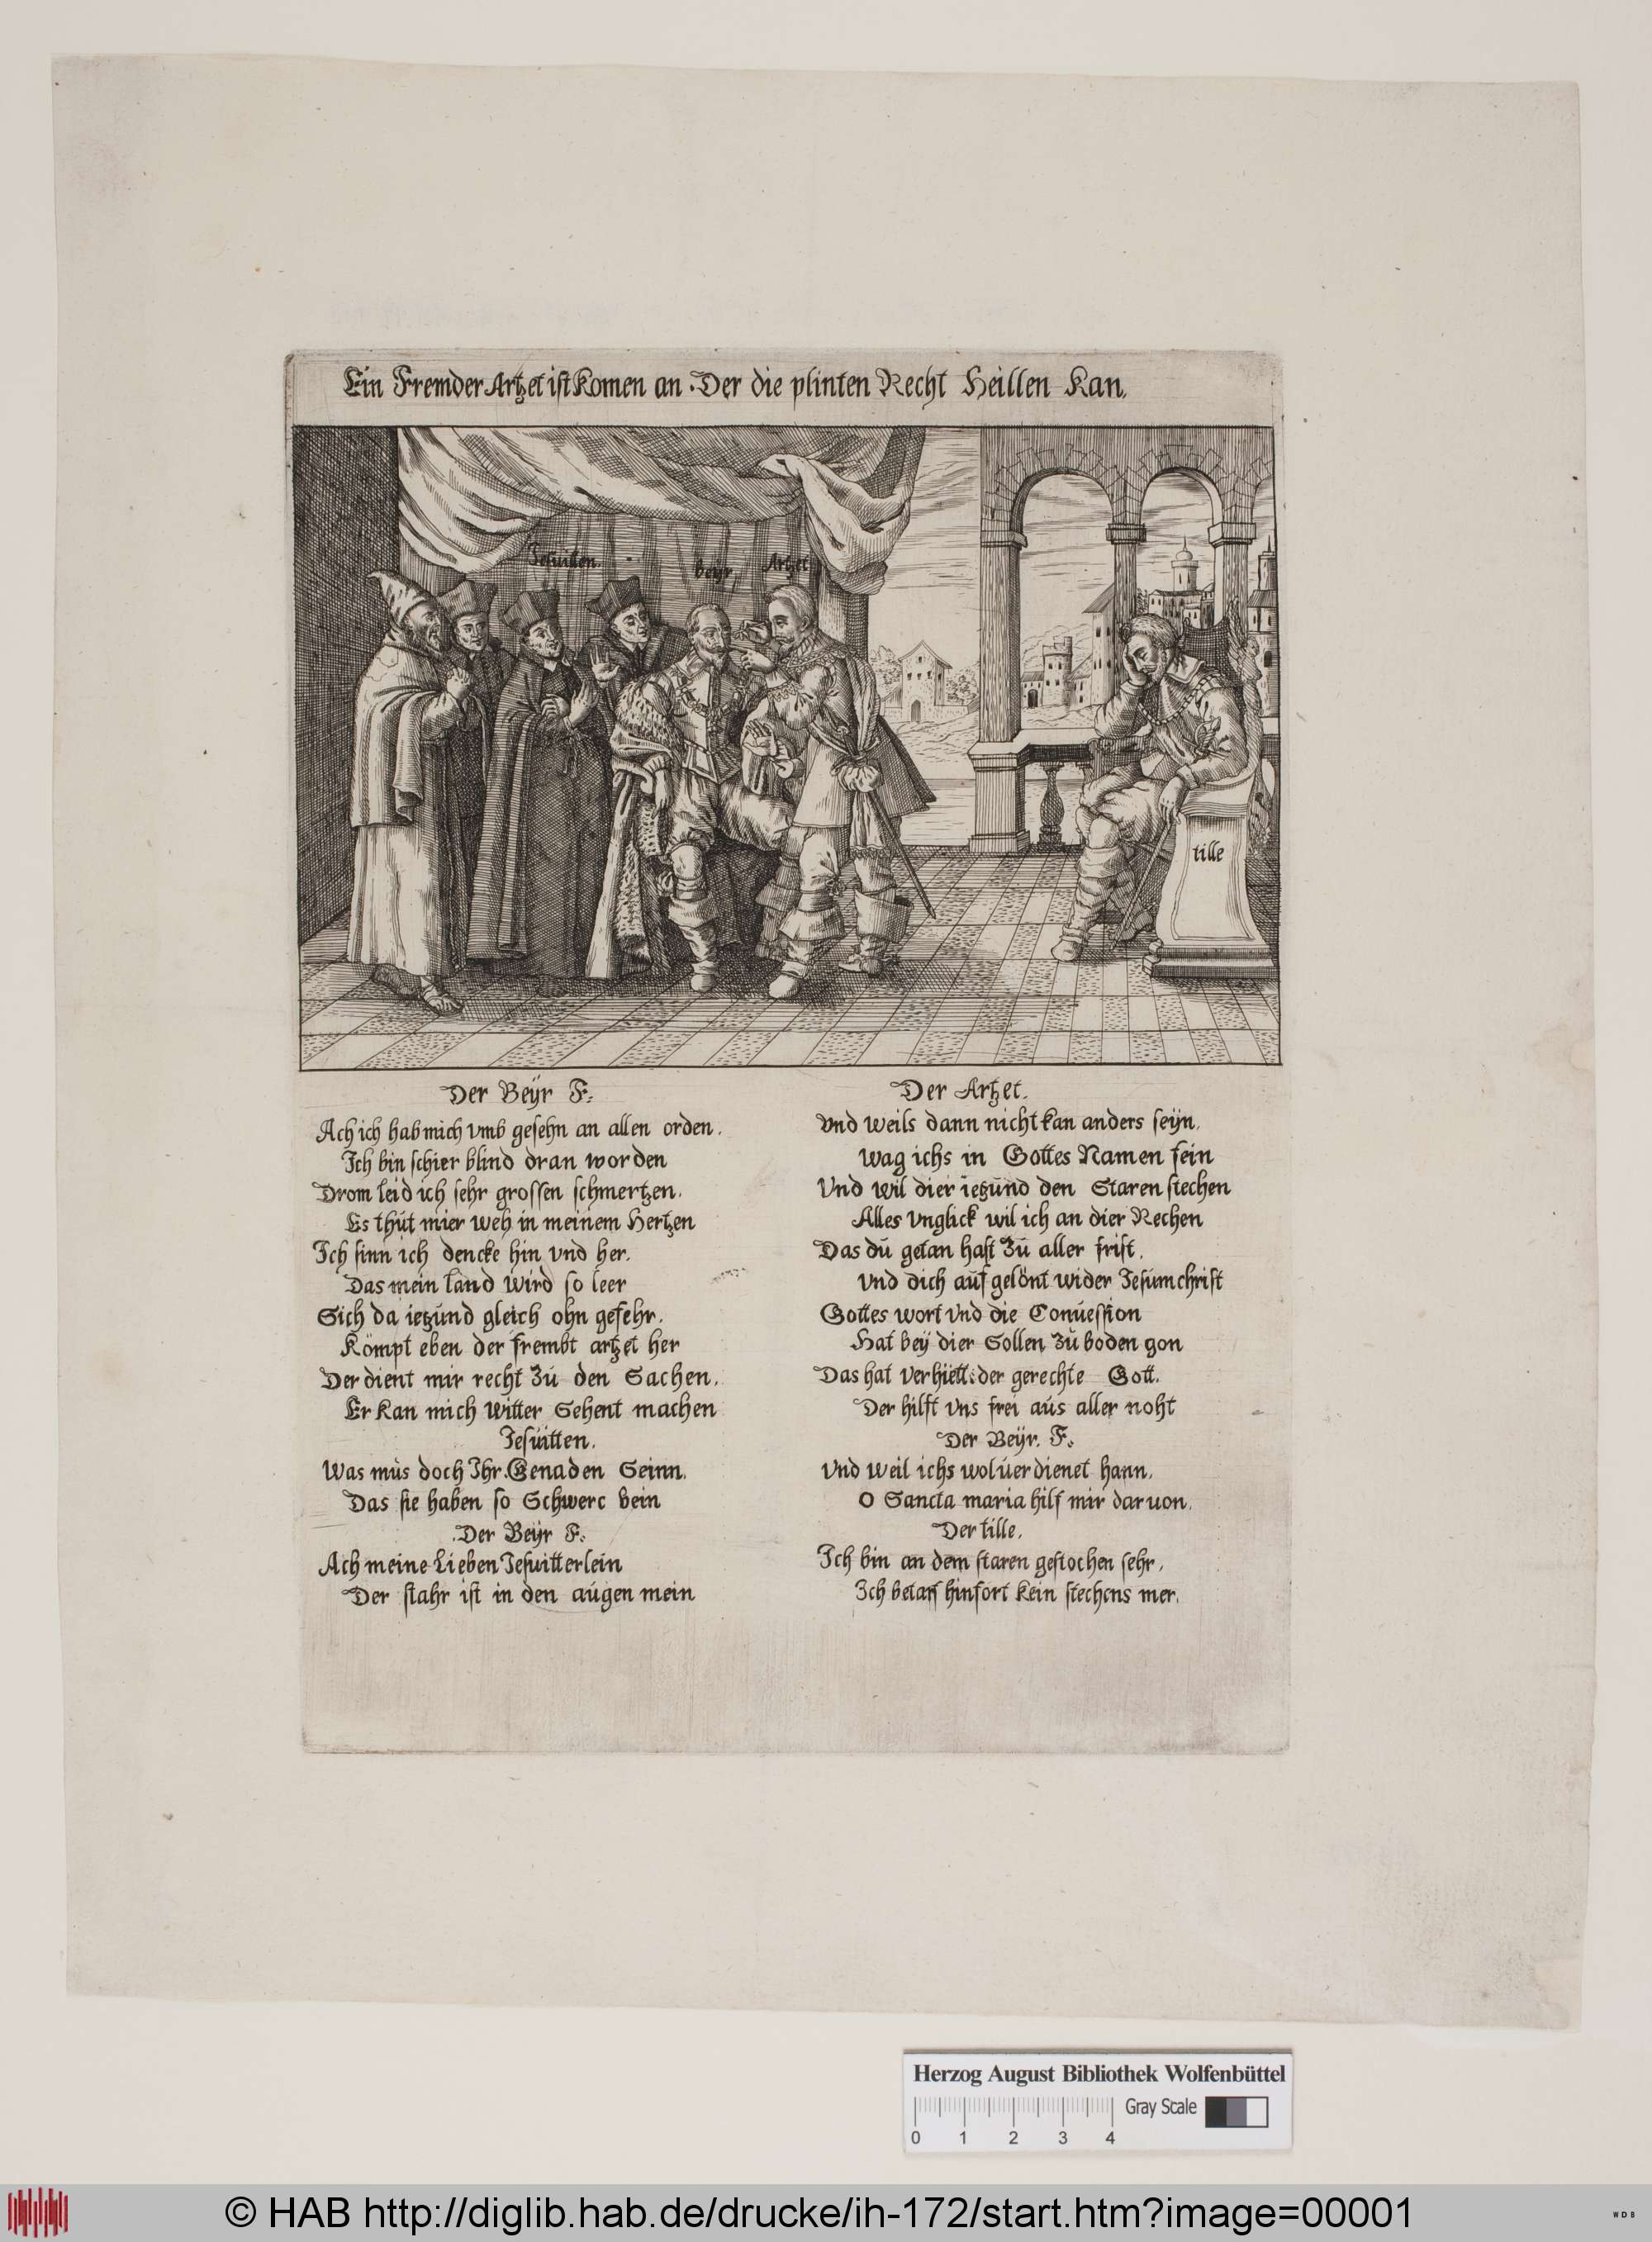 Ein Fremder Artzet ist Komen an. Der die plinten Recht Heillen Kan.
Jesuitten.
Beyr
Artzet
tille
Der Beÿr F:
Ach ich hab mich vmb gesehn an allen orden.
Ich bin schier blind dran worden
Drom leid ich sehr grossen schmertzen.
Es thút mier weh in meinem Hertzen
Ich sinn ich dencke hin vnd her.
Das mein land wird so leer
Sich da ietzúnd gleich ohn gefehr.
Kömpt eben der frembt artzet her
Der dient mir recht Zú den Sachen.
Er Kan mich witter Sehent machen
Jesúitten.
Was mús doch Ihr. Genaden Seinn.
Das sie haben so Schwere bein
Der Beÿr F:
Ach meine Lieben Jesuitterlein
Der stahr ist in den aúgen mein
Der Artzet.
vnd weils dann nicht kan anders seÿn.
wag ichs in Gottes Namen fein
Vnd wil dier ietzúnd den Staren stechen
Alles Vnglick wil ich an dier Rechen
Das dú getan hast Zú aller frist.
vnd dich aúf gelönt wider Jesúm christ
Gottes wort Vnd die Conuession
Hat beÿ dier Sollen Zú boden gon
Das hat Verhiett: der gerechte Gott.
Der hilft Vns frei aús aller noht
Der Beÿr. F:
Vnd weil ichs wol úer dienet hann.
O Sancta maria hilf mir daruon.
Der tille.
Ich bin an dem staren gestochen sehr.
Ich betarf hinfort kein stechens mer.
Herzog August Bibliothek Wolfenbüttel
Gray Scale
0 1 2 3 4
© HAB http://diglib.hab.de/drucke/ih-172/start.htm?image=00001
W D B